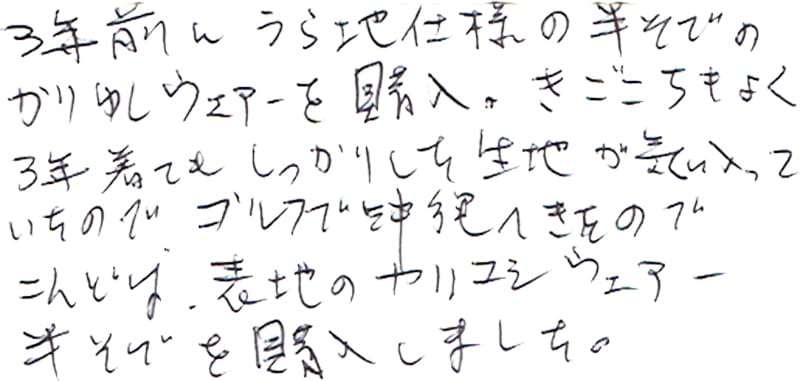 3年前に うら地仕様の半そでの
かりゆしウェアーを購入。きごこちもよく
3年着ても しっかりした生地が気に入って
いたので ゴルフで沖縄へきたので
こんどは、表地のカリユシウェアー
半そでを購入しました。